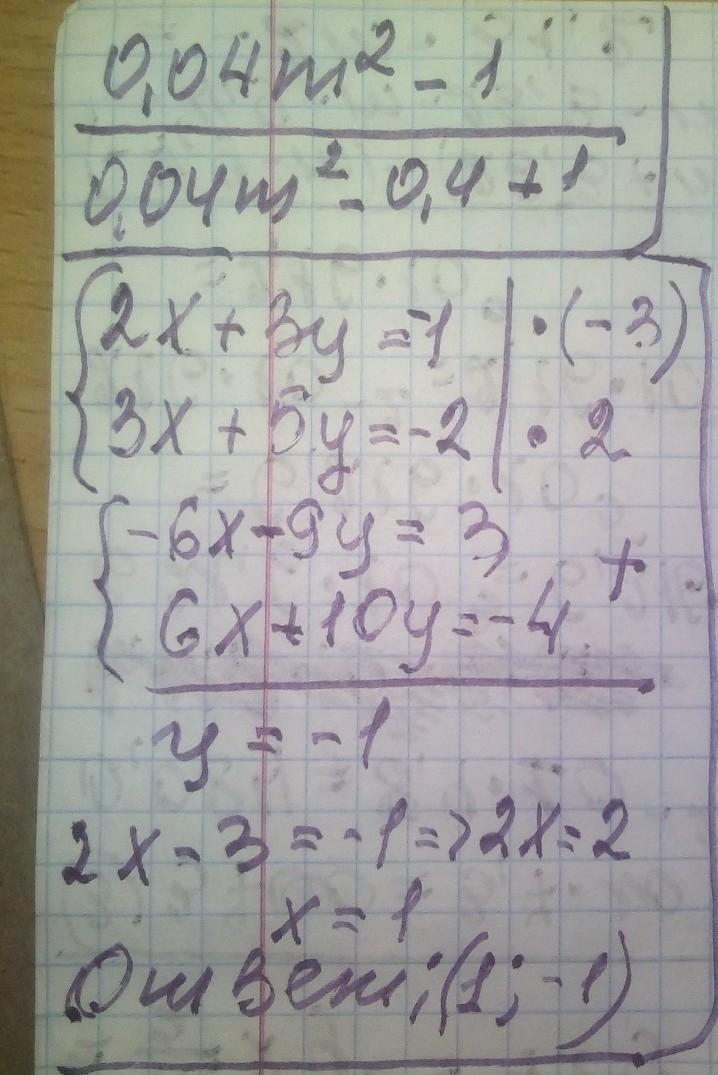 0,04m² - 1
0,04m² - 0,4 + 1
2x + 3y = -1 | · (-3)
3x + 5y = -2 | · 2
-6x - 9y = 3
+
6x + 10y = -4
y = -1
2x - 3 = -1 => 2x = 2
x = 1
Ответ; (1; -1)